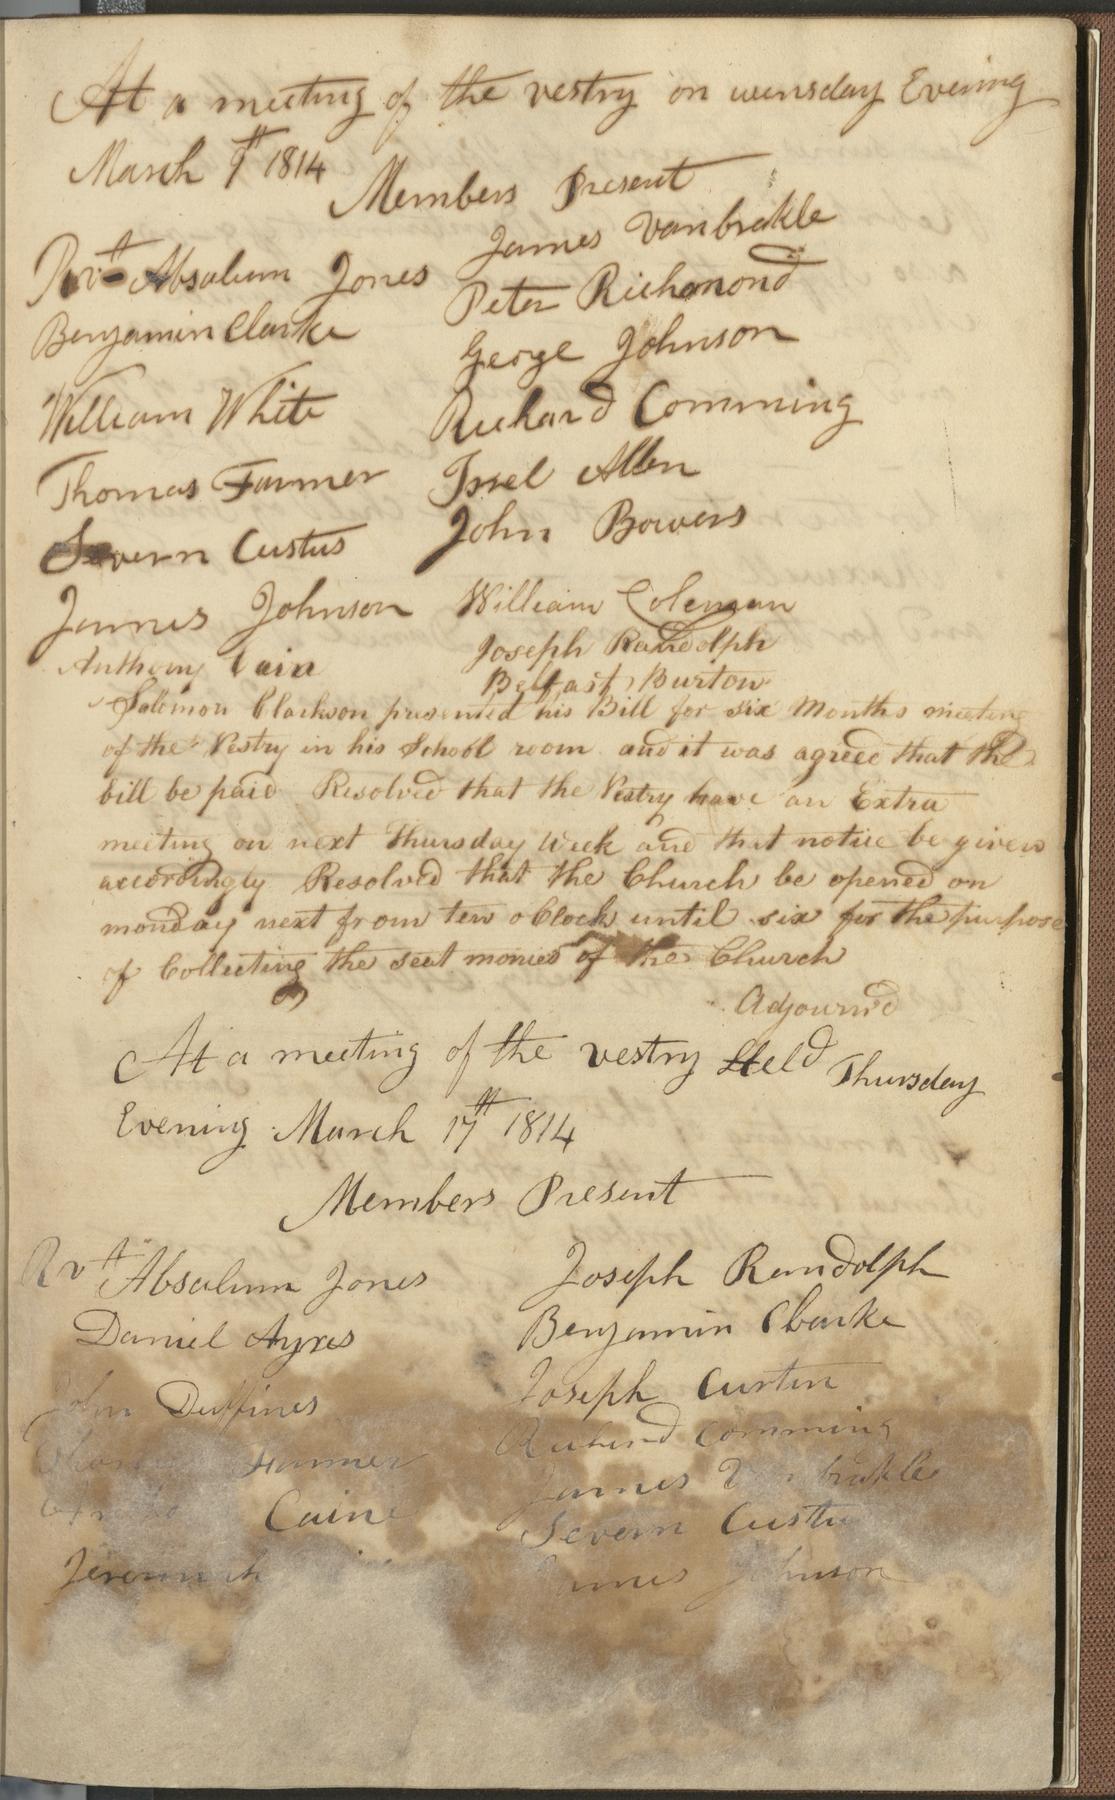 At a meeting of the vestry on wensday Evening
March 9th 1814
Members Present
Revd Absalum Jones
Benjamin Clarke
William White
Thomas Farmer
Severn Custus
James Johnson
Anthony Cain
James Vanbrakle
Peter Richmond
George Johnson
Richard Comming
Isrel Allen
John Bowers
William Coleman
Joseph Randolph
Belfast Burton
Solomon Clarkson presented his Bill for six Months meeting
of the Vestry in his School room and it was agreed that the
bill be paid Resolved that the Vestry have an Extra
meeting on next Thursday Week and that notice be given
accordingly Resolved that the Church be opened on
monday next from ten oClock until six for the purpose
of Collecting the seat monies of the Church
Adjourn'd
At a meeting of the vestry Held Thursday
Evening March 17th 1814
Members Present
Rvd Absalum Jones
Daniel Ayres
John Duffines
Farmer
Caine
Joseph Randolph
Benjamin Clarke
Joseph Curten
Richard Comming
James
Severn
James Johnson